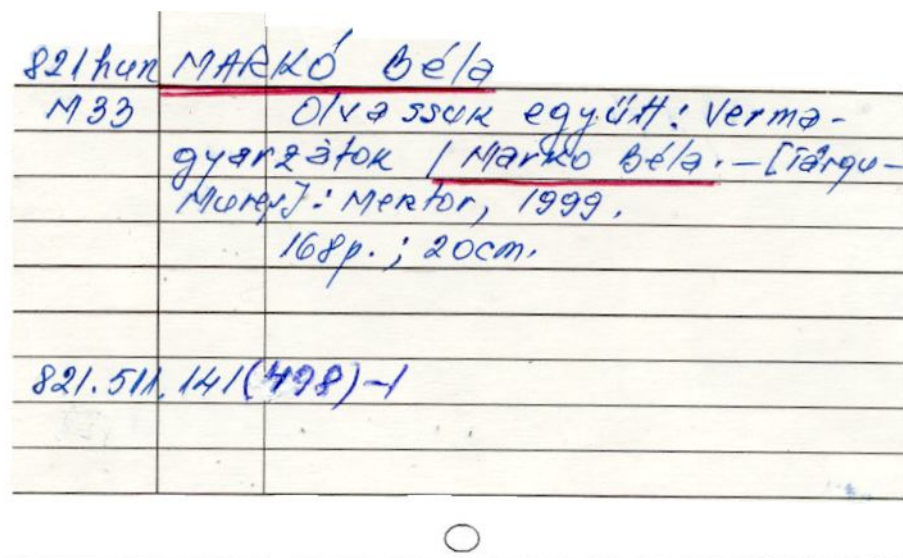 821hun MARKÓ Béla
M33 Olvassuk együtt: Verma-
gyarzátok / Markó Béla. - [Târgu-
Mureş]: Mentor, 1999.
168p.; 20cm.
821.511.141(498)-1